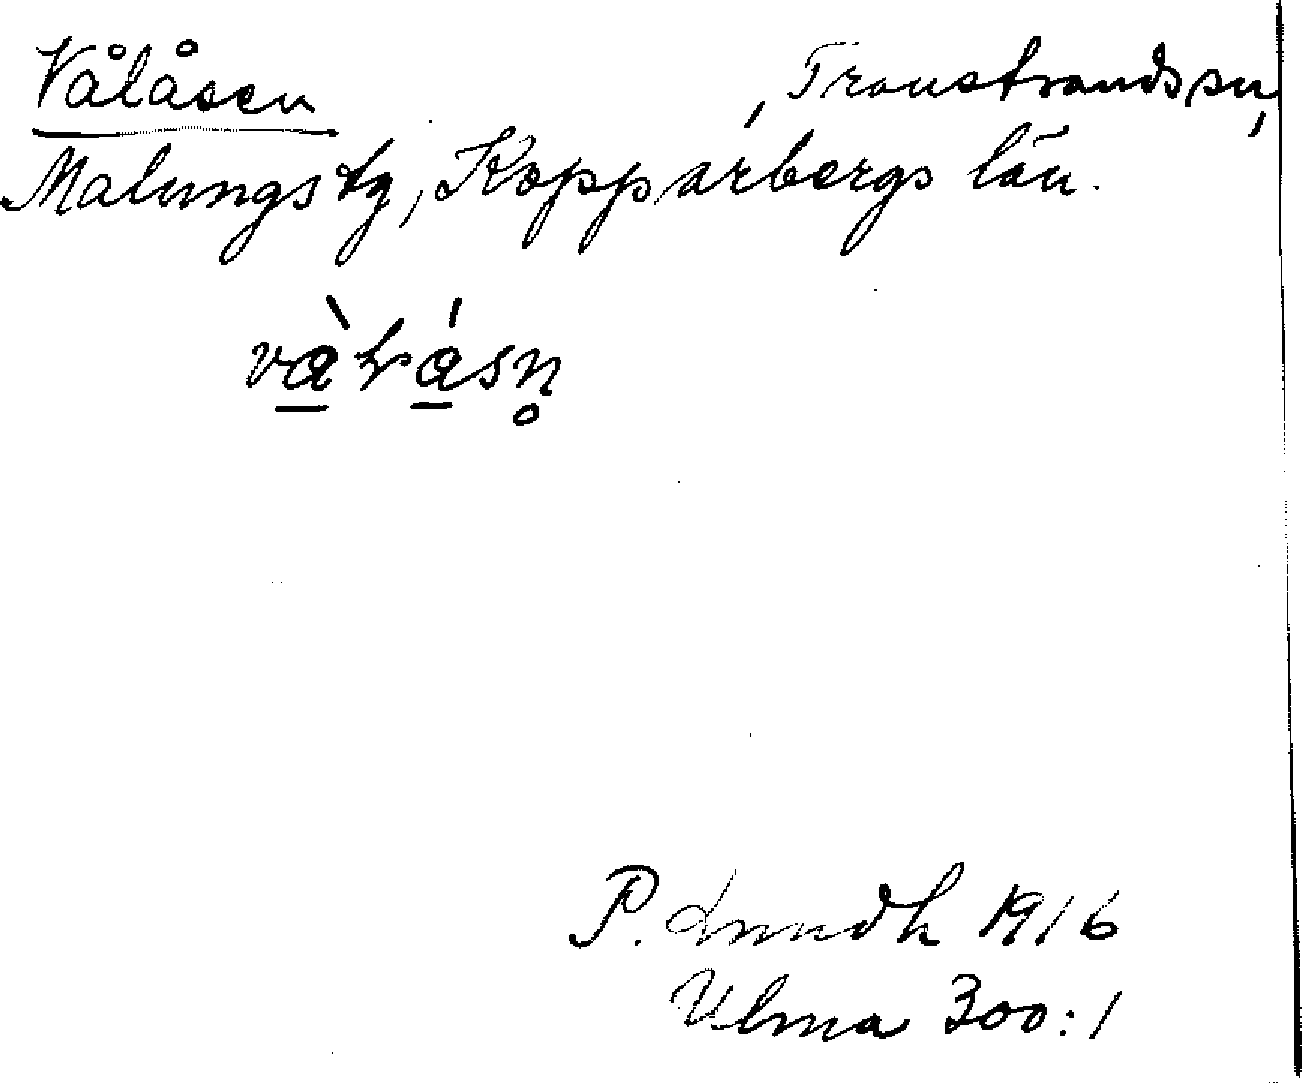 Vålåsen, Transtrands sn,
Malungs tg, Kopparbergs län.
P. Lundh 1916
Ulma 300:1